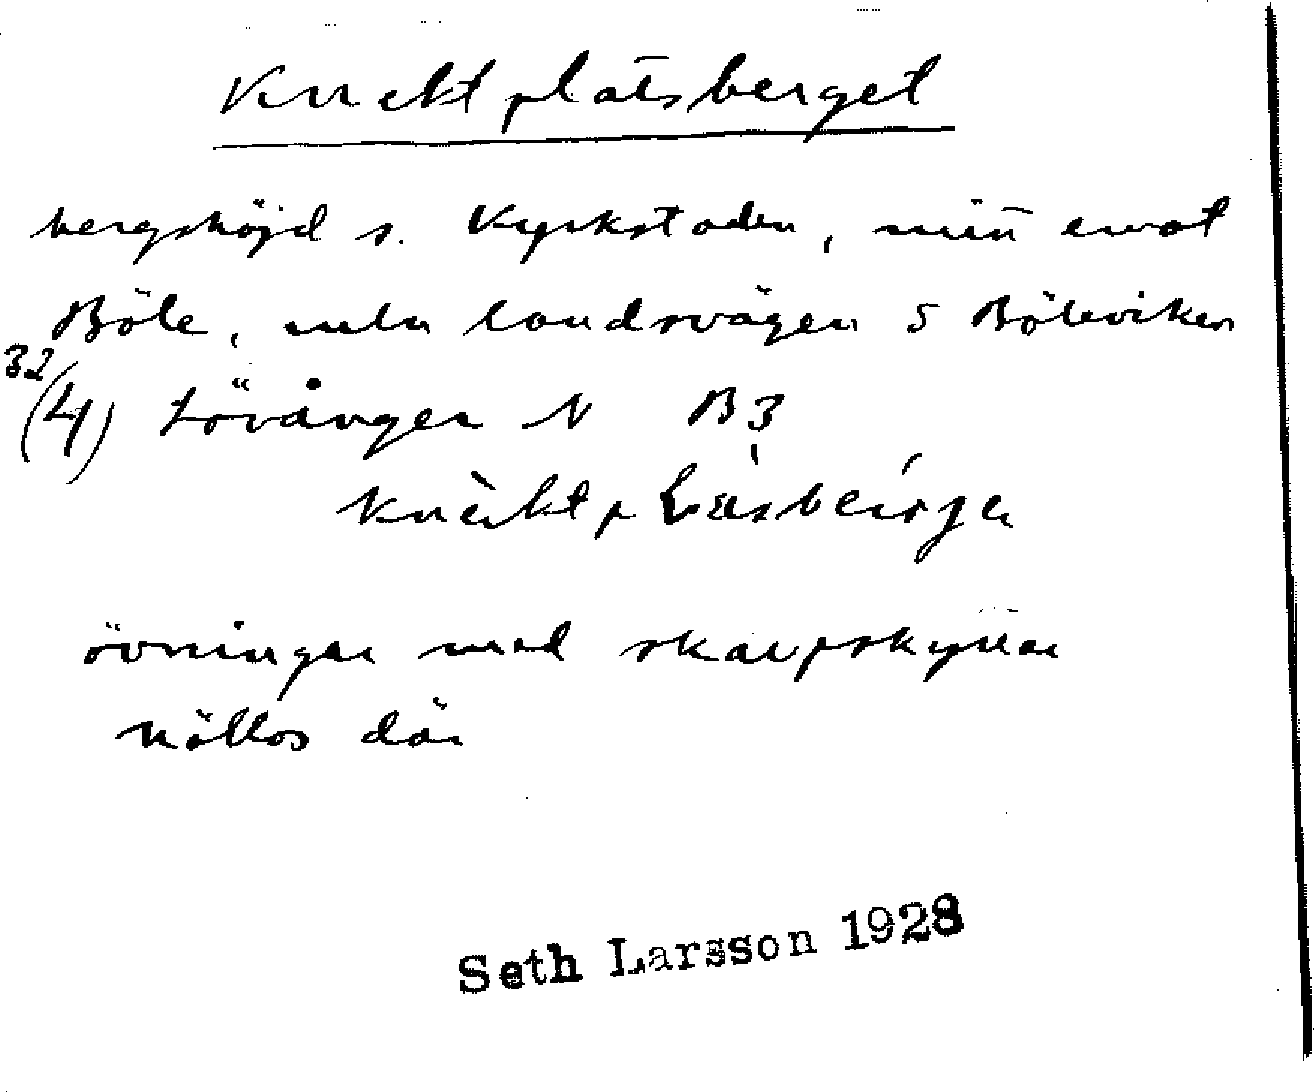 Knektplatsberget
bergshöjd s. Kyrkstaden, mitt emot
Böle, intill landsvägen S Böleviken
32
(4) Lövånger N B3
övningar med skarpskyttar
höllos där
Seth Larsson 1928